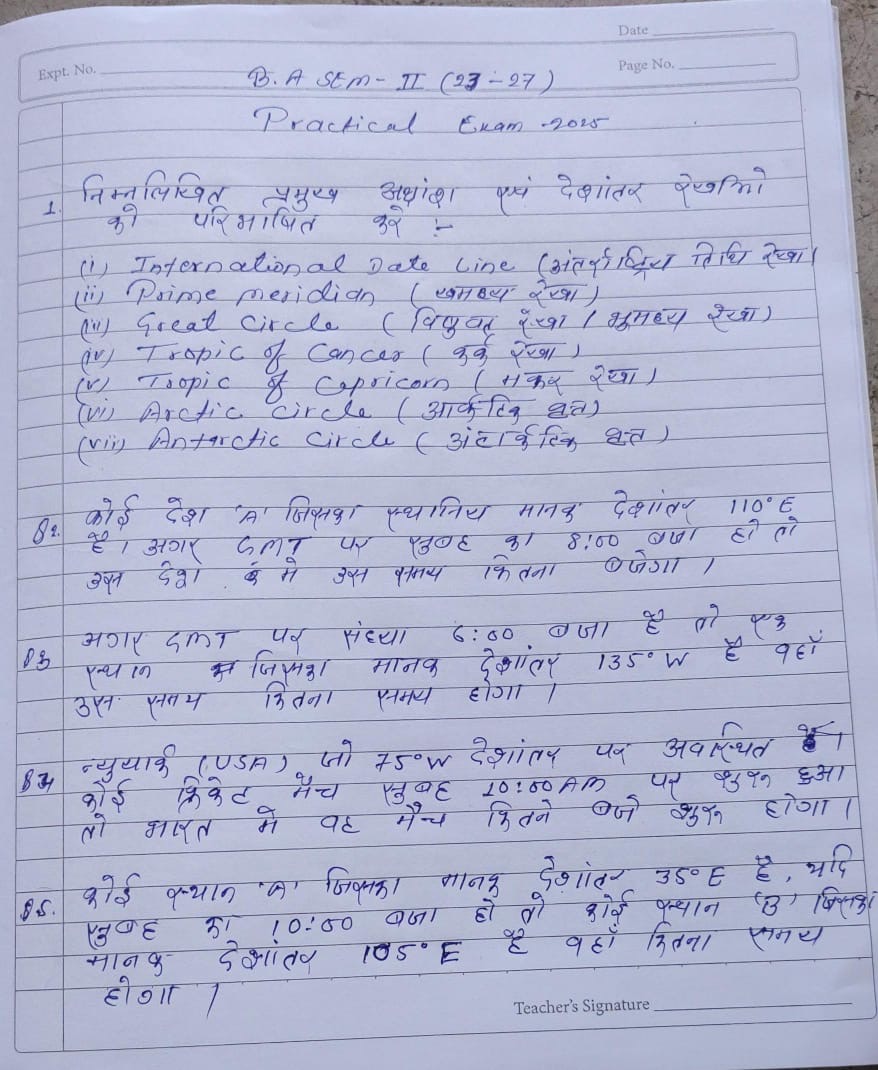 Date
Expt. No.
Page No.
B.A SEM-II (23-27)
Practical Exam-2025
1. निम्नलिखित प्रमुख अक्षांश एवं देशांतर रेखाओ
को परिभाषित करे :-
(i) International Date Line (अंतर्राष्ट्रिय तिथि रेखा)
(ii) Prime meridian ( रेखा)
(iii) Great Circle (विषुवत् रेखा / भूमध्य रेखा)
(iv) Tropic of Cancer (कर्क रेखा)
(v) Tropic of Capricorn (मकर रेखा)
(vi) Arctic Circle (आर्कटिक वृत)
(vii) Antarctic Circle (अंटार्कटिक वृत)
Q2. कोई देश 'A' जिसका स्थानिय मानक देशांतर 110°E
है। अगर GMT पर सुबह का 8:00 बजा हो तो
उस देश मे उस समय कितना बजेगा।
Q3 अगर GMT पर संध्या 6:00 बजा है तो एक
स्थान जिसका मानक देशांतर 135°W है वहाँ
उस समय कितना समय होगा।
Q4 न्युयार्क (USA) जो 75°W देशांतर पर अवस्थित है।
कोई क्रिकेट मैच सुबह 10:00 AM पर शुरू हुआ
तो भारत मे वह मैच कितने बजे शुरू होगा।
Q5. कोई स्थान 'A' जिसका मानक देशांतर 35°E है, यदि
सुबह का 10:00 बजा हो तो कोई स्थान 'B' जिसका
मानक देशांतर 105°E है वहाँ कितना समय
होगा।
Teacher's Signature